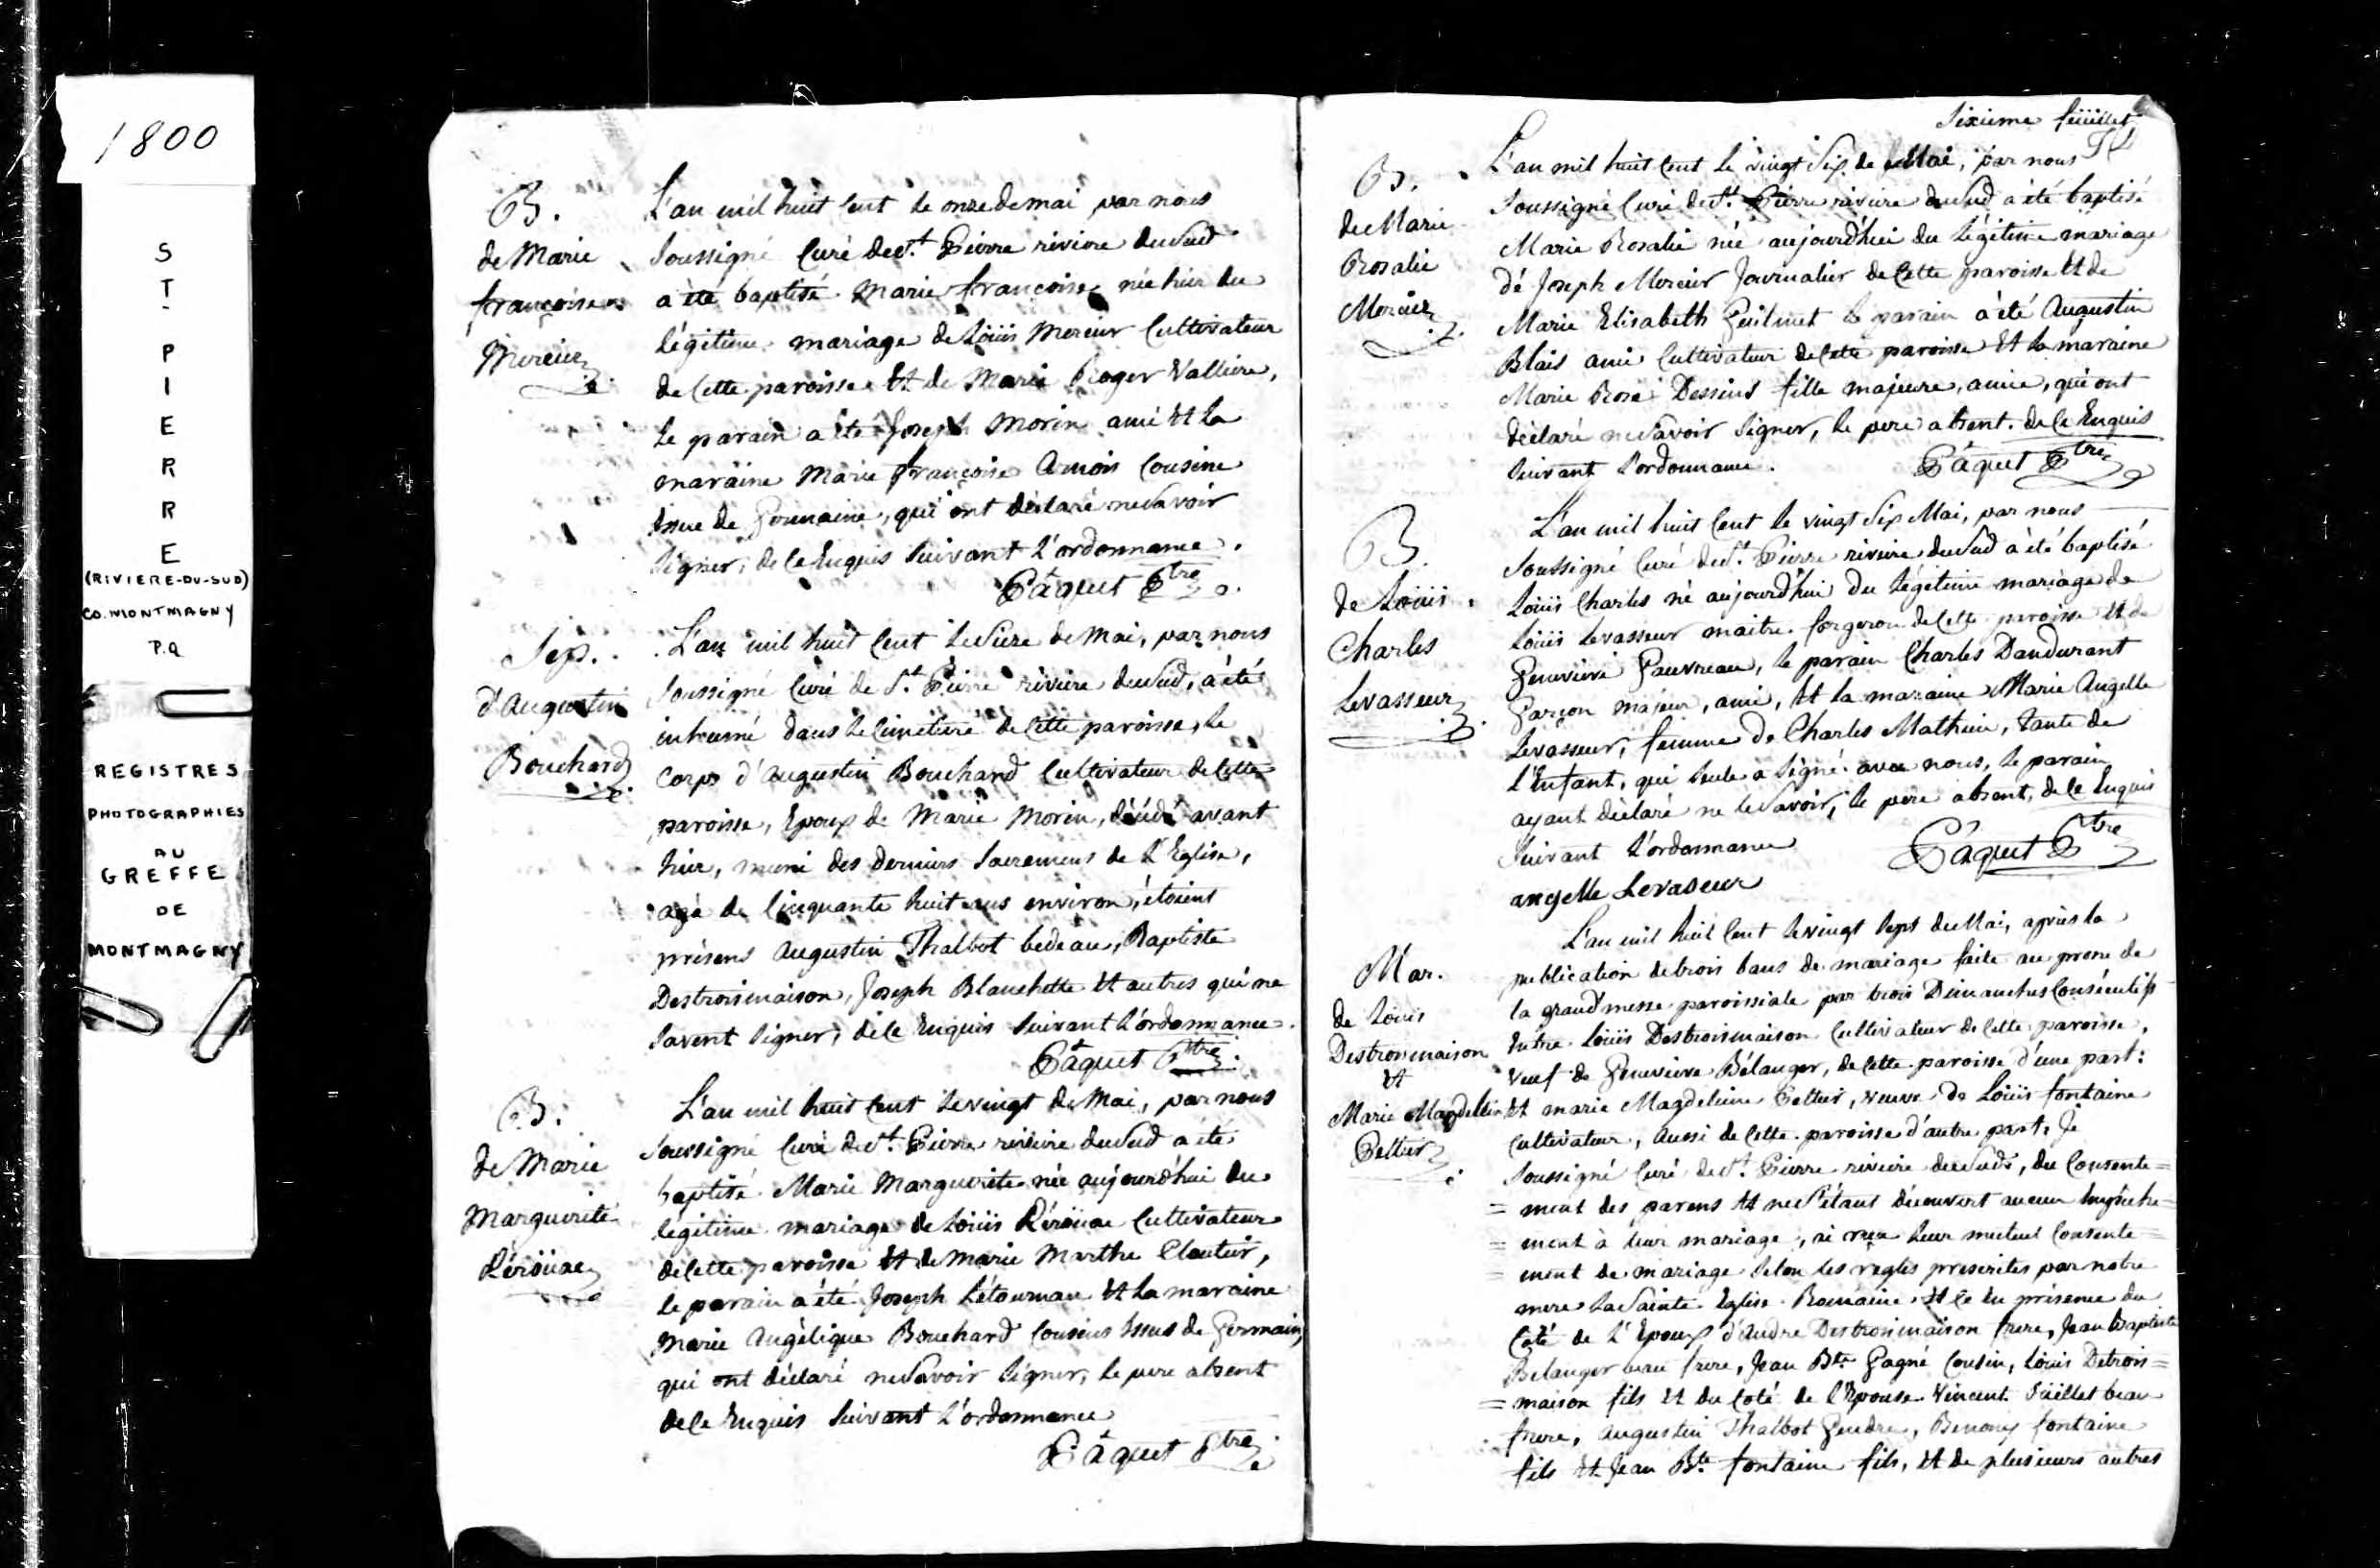 1800
ST PIERRE
(RIVIERE-DU-SUD)
CO. MONTMAGNY
P.Q
REGISTRES
PHOTOGRAPHIES
AU
GREFFE
DE
MONTMAGNY
B.
de Marie
françoise
Mercier
L'an mil huit Cent le onze de mai par nous
Soussigné Curé de St. Pierre riviere du Sud
a été baptisé Marie françoise née hier du
légitime mariage de Loüis Mercier Cultivateur
de Cette paroisse Et de Marie Roger Valliere,
le parain a été Joseph Morin ami Et la
maraine Marie françoise Cousine
issue de Germaine, qui ont déclaré ne Savoir
Signer, de Ce Enquis Suivant L'ordonnance.
Pâquet Ptre
Sep.
d'Augustin
Bouchard
L'an mil huit Cent le Sieze de Mai, par nous
Soussigné Curé de St. Pierre riviere du Sud, a été
inhumé dans le Cimetiere de Cette paroisse, le
Corps d'Augustin Bouchard Cultivateur de Cette
paroisse, Epoux de Marie Morin, décédé avant
hier, muni des Derniers Sacremens de L'Eglise,
agé de Cinquante huit ans environ, étoient
présens Augustin Thalbot bedeau, Baptiste
Destroismaison, Joseph Blanchette Et autres qui ne
Savent Signer, de Ce Enquis Suivant L'ordonnance.
Pâquet Ptre
B.
de Marie
Marguerite
Kéroüac
L'an mil huit Cent le vingt de Mai, par nous
Soussigné Curé de St. Pierre riviere du Sud a été
baptisé Marie Marguerite née aujourd'hui du
légitime mariage de Loüis Kéroüac Cultivateur
de Cette paroisse Et de Marie Marthe Cloutier,
le parain a été Joseph Létourneau Et la maraine
Marie Angélique Bouchard Cousins Issus de Germain,
qui ont déclaré ne Savoir Signer, le pere absent
de Ce Enquis Suivant L'ordonnance
Pâquet Ptre
Sixieme feüillet
B.
de Marie
Rosalie
Mercier
L'an mil huit Cent le vingt Six de Mai, par nous
Soussigné Curé de St. Pierre riviere du Sud a été baptisé
Marie Rosalie née aujourd'hui du Légitime mariage
de Joseph Mercier Journalier de Cette paroisse Et de
Marie Elisabeth Guilmet le parain a été Augustin
Blais ami Cultivateur de Cette paroisse Et la maraine
Marie Rose Dessins fille majeure, amie, qui ont
déclaré ne Savoir Signer, le pere absent. de Ce Enquis
Suivant L'ordonnance.
Pâquet Ptre
B.
de Loüis
Charles
Levasseur
L'an mil huit Cent le vingt Six Mai, par nous
Soussigné Curé de St. Pierre riviere du Sud a été baptisé
Loüis Charles né aujourd'hui du Légitime mariage de
Loüis Levasseur maitre forgeron de Cette paroisse Et de
Genevieve Gauvreau, le parain Charles Dandurant
Garçon majeur, ami, Et la maraine Marie Angelle
Levasseur, femme de Charles Mathieu, tante de
L'Enfant, qui Seule a Signé avec nous, le parain
ayant déclaré ne le Savoir, le pere absent, de Ce Enquis
Suivant L'ordonnance
Pâquet Ptre
angelle Levaseur
Mar.
de Loüis
Destroismaison
Et
Marie Magdeleine
Peltier
L'an mil huit Cent le vingt Sept de Mai, après la
publication de trois bans de mariage faite au prone de
la grand messe paroissiale par trois Dimanches Consécutifs
Entre Loüis Destroismaison Cultivateur de Cette paroisse,
veuf de Genevieve Bélanger, de Cette paroisse d'une part:
Et marie Magdeleine Peltier, veuve de Loüis fontaine
Cultivateur, aussi de Cette paroisse d'autre part, Je
Soussigné Curé de St. Pierre riviere du Sud, du Consente=
=ment des parens Et ne S'étant découvert aucun Empêche=
=ment à leur mariage, ai reçu leur mutuel Consente=
=ment de mariage Selon les regles prescrites par notre
mere la Sainte Eglise Romaine. Et Ce En présence du
Coté de L'Epoux d'Andre Destroismaison frere, Jean Baptiste
Belanger beau frere, Jean Bte. Gagné Cousin, Loüis Detrois=
=maison fils Et du Coté de l'Epouse Vincent beau
frere, Augustin Thalbot Gendre, Benony fontaine
fils Et Jean Bte. fontaine fils, Et de plusieurs autres